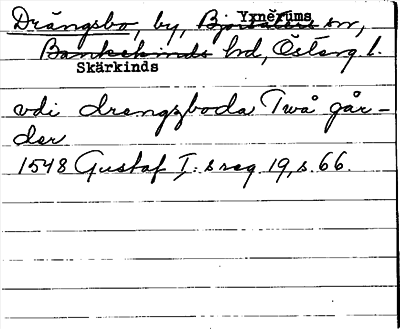 Drängsbo, by, Björsäters Yxnerums sn,
Bankekinds hd, Österg l.
Skärkinds
vdi drengzboda Twå går-
der
1548 Gustaf I:s reg 19, s. 66.